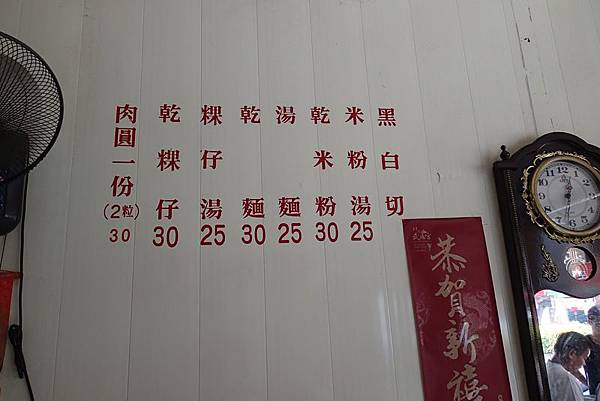 黑白切
米粉湯 25
乾米粉 30
湯麵 25
乾麵 30
粿仔湯 25
乾粿仔 30
肉圓一份(2粒) 30
恭賀新禧